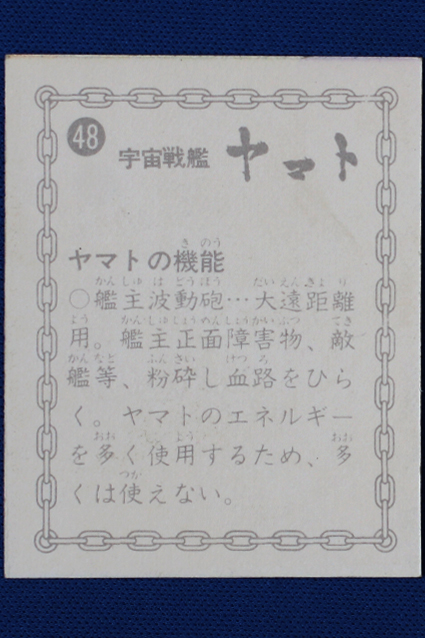 48
宇宙戦艦 ヤマト
ヤマトの機能
○艦主波動砲…大遠距離
用。艦主正面障害物、敵
艦等、粉砕し血路をひら
く。ヤマトのエネルギー
を多く使用するため、多
くは使えない。